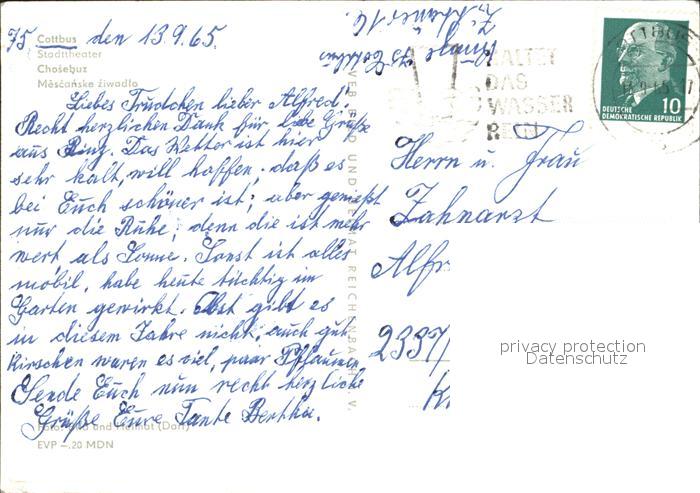 75 Cottbus den 13.9.65.
Stadttheater
Chośebuz
Měsćańske źiwadło
Liebes Trudchen lieber Alfred!
Recht herzlichen Dank für liebe Grüße
aus Binz. Das Wetter ist hier
sehr kalt, will hoffen, daß es
bei Euch schöner ist; aber genießt
nur die Ruhe, denn die ist mehr
wert als Sonne. Sonst ist alles
mobil, habe heute tüchtig im
Garten gewirkt. Obst gibt es
in diesem Jahre nicht, auch gut
Kirschen waren es viel, paar Pflaumen
Sende Euch nun recht herzliche
Grüße Eure Tante Bertha.
Foto: Bild und Heimat (Darr)
EVP -.20 MDN
VEB BILD UND HEIMAT REICHENBACH I. V.
75 Cottbus
HALTET
DAS
WASSER
REIN
COTTBUS
DEUTSCHE
DEMOKRATISCHE REPUBLIK
10
Herrn u. Frau
Zahnarzt
Alfr
2337/
K.
privacy protection
Datenschutz